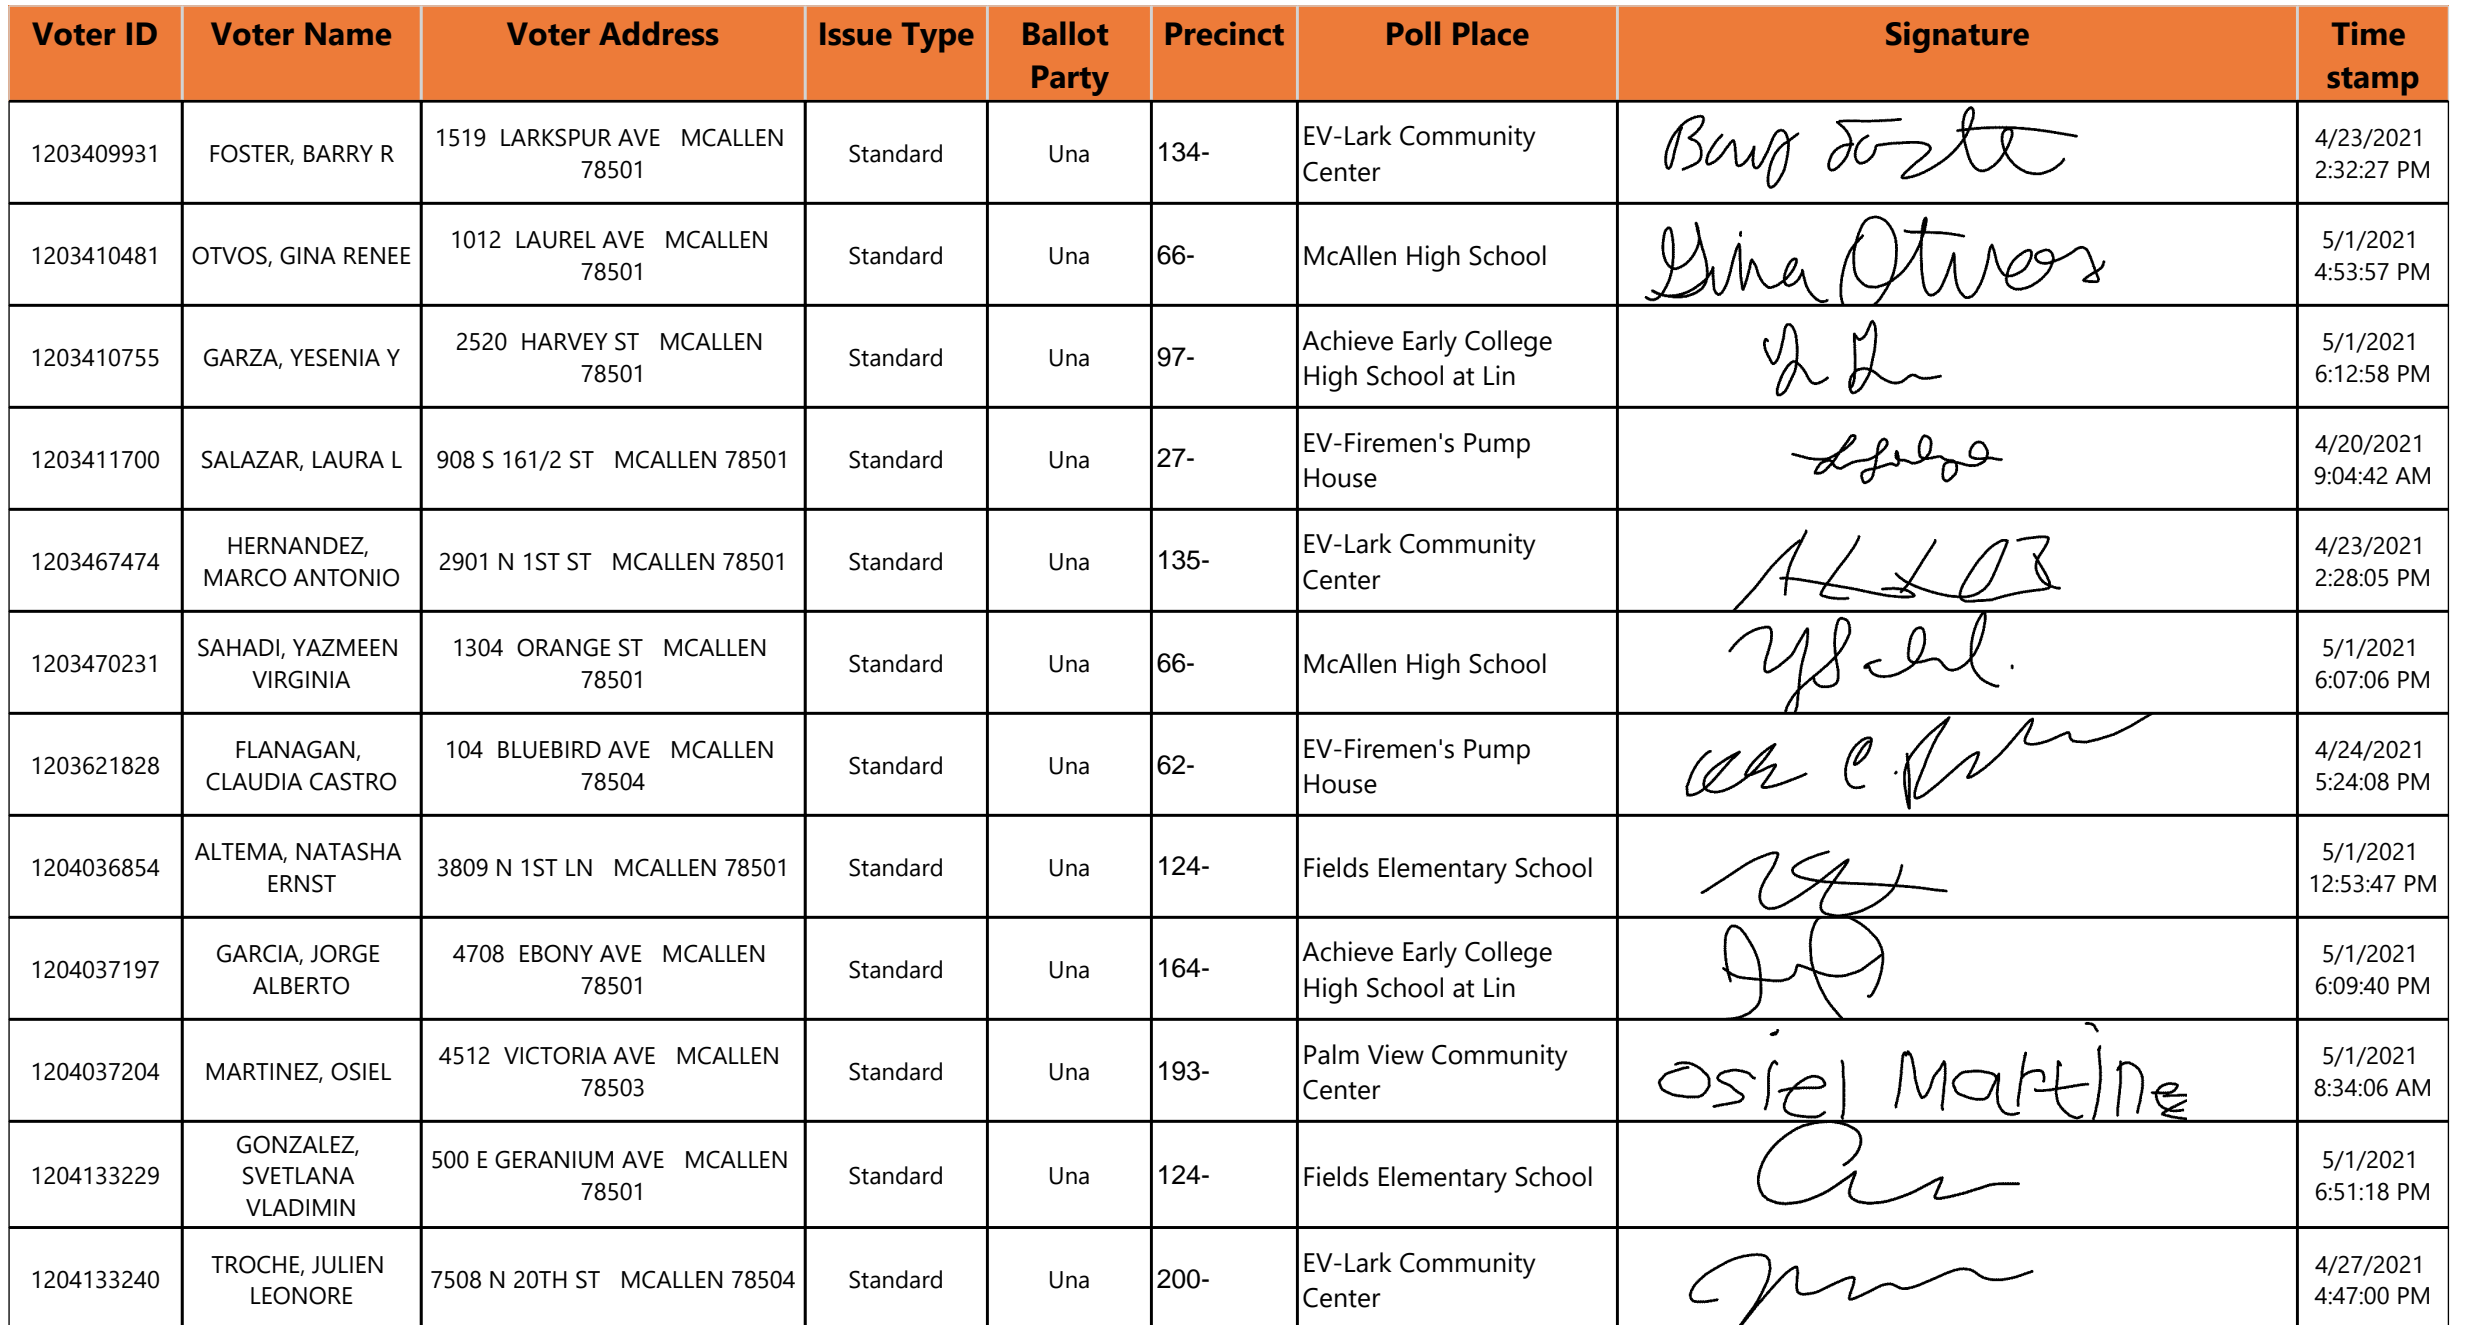 Voter ID Voter Name Voter Address Issue Type Ballot Party Precinct Poll Place Signature Time stamp
1203409931 FOSTER, BARRY R 1519 LARKSPUR AVE MCALLEN 78501 Standard Una 134- EV-Lark Community Center Barry Foster 4/23/2021 2:32:27 PM
1203410481 OTVOS, GINA RENEE 1012 LAUREL AVE MCALLEN 78501 Standard Una 66- McAllen High School Gina Otvos 5/1/2021 4:53:57 PM
1203410755 GARZA, YESENIA Y 2520 HARVEY ST MCALLEN 78501 Standard Una 97- Achieve Early College High School at Lin 5/1/2021 6:12:58 PM
1203411700 SALAZAR, LAURA L 908 S 161/2 ST MCALLEN 78501 Standard Una 27- EV-Firemen's Pump House 4/20/2021 9:04:42 AM
1203467474 HERNANDEZ, MARCO ANTONIO 2901 N 1ST ST MCALLEN 78501 Standard Una 135- EV-Lark Community Center 4/23/2021 2:28:05 PM
1203470231 SAHADI, YAZMEEN VIRGINIA 1304 ORANGE ST MCALLEN 78501 Standard Una 66- McAllen High School 5/1/2021 6:07:06 PM
1203621828 FLANAGAN, CLAUDIA CASTRO 104 BLUEBIRD AVE MCALLEN 78504 Standard Una 62- EV-Firemen's Pump House 4/24/2021 5:24:08 PM
1204036854 ALTEMA, NATASHA ERNST 3809 N 1ST LN MCALLEN 78501 Standard Una 124- Fields Elementary School 5/1/2021 12:53:47 PM
1204037197 GARCIA, JORGE ALBERTO 4708 EBONY AVE MCALLEN 78501 Standard Una 164- Achieve Early College High School at Lin 5/1/2021 6:09:40 PM
1204037204 MARTINEZ, OSIEL 4512 VICTORIA AVE MCALLEN 78503 Standard Una 193- Palm View Community Center Osiel Martine 5/1/2021 8:34:06 AM
1204133229 GONZALEZ, SVETLANA VLADIMIN 500 E GERANIUM AVE MCALLEN 78501 Standard Una 124- Fields Elementary School 5/1/2021 6:51:18 PM
1204133240 TROCHE, JULIEN LEONORE 7508 N 20TH ST MCALLEN 78504 Standard Una 200- EV-Lark Community Center 4/27/2021 4:47:00 PM